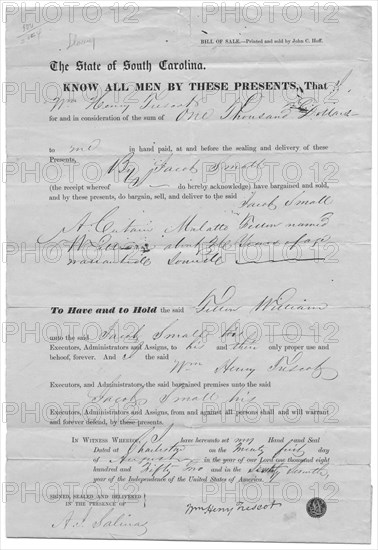 Slavery
BILL OF SALE.—Printed and sold by John C. Hoff.
The State of South Carolina.
KNOW ALL MEN BY THESE PRESENTS, That I,
Wm Henry Trescot
for and in consideration of the sum of One Thousand Dollars
to me in hand paid, at and before the sealing and delivery of these
Presents, By Jacob Small
(the receipt whereof do hereby acknowledge) have bargained and sold,
and by these presents, do bargain, sell, and deliver to the said Jacob Small
A Certain Mulatto Fellow named
William about Years of age
warranted Sound
To Have and to Hold the said Fellow William
unto the said Jacob Small his
Executors, Administrators and Assigns, to his and their only proper use and
behoof, forever. And I the said
Wm Henry Trescot
Executors, and Administrators, the said bargained premises unto the said
Jacob Small his
Executors, Administrators and Assigns, from and against all persons shall and will warrant
and forever defend, by these presents.
IN WITNESS WHEREOF, I have hereunto set my Hand and Seal
Dated at Charleston on the Twenty first day
of in the year of our Lord one thousand eight
hundred and Fifty two and in the Seventy Seventh
year of the Independence of the United States of America.
SIGNED, SEALED AND DELIVERED
IN THE PRESENCE OF
Wm Henry Trescot
A. J. Salinas